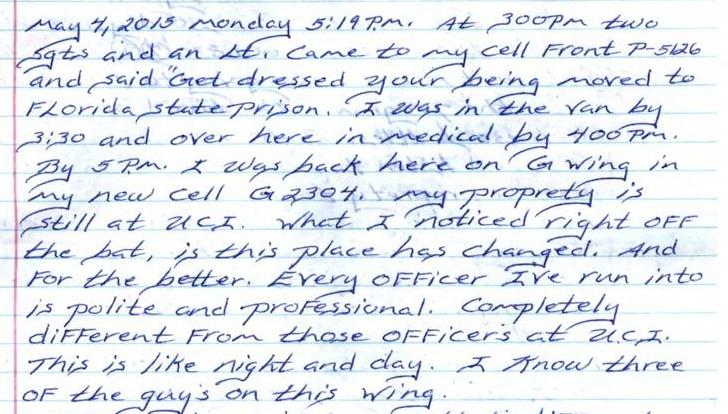 May 4, 2015 Monday 5:19 P.M. At 300pm two
sgts and an Lt. came to my cell Front P-5126
and said "Get dressed your being moved to
FLorida state Prison. I was in the van by
3:30 and over here in medical by 400 PM.
By 5 PM. I was back here on G wing in
my new cell G2304. my proprety is
still at UCI. What I noticed right OFF
the bat, is this place has changed. And
For the better. Every OFFicer I've run into
is polite and proFessional. Completely
diFFerent From those OFFicers at U.C.I.
This is like night and day. I Know three
OF the guy's on this wing.